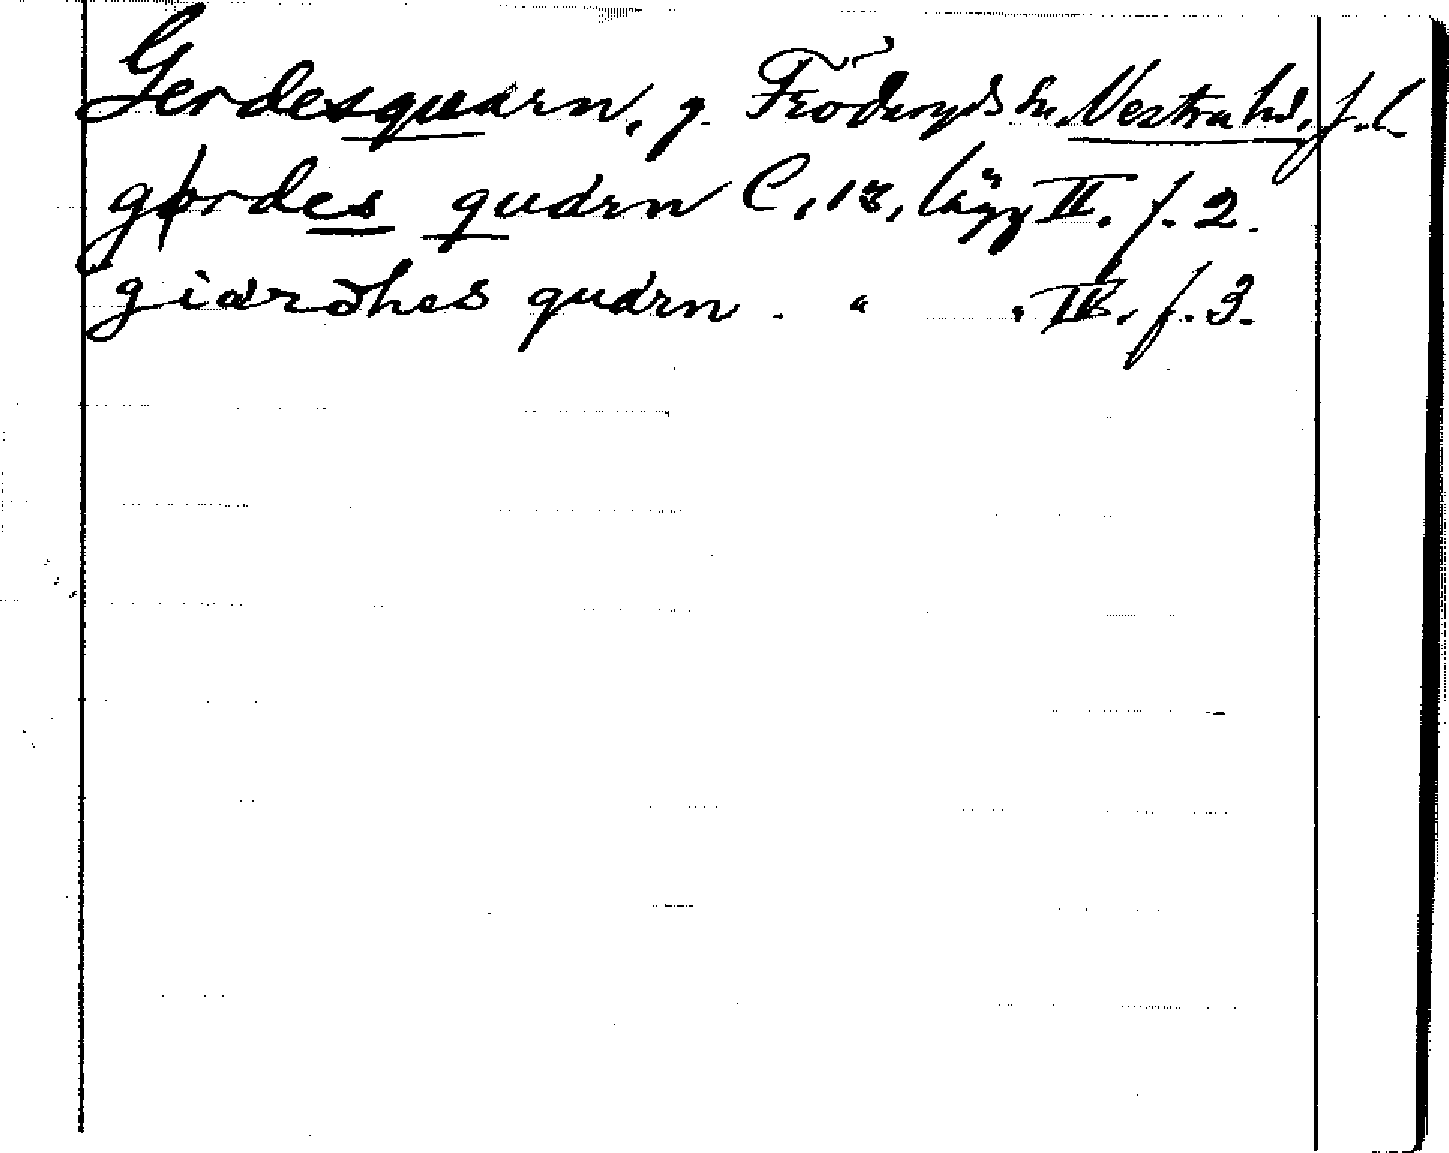 Gerdesquarn, g. Fröderyds sn. Vestra hd, f. l
gordes quarn C, 18, lägg II. f. 2.
giærdhes quarn . " , IV. f. 3.